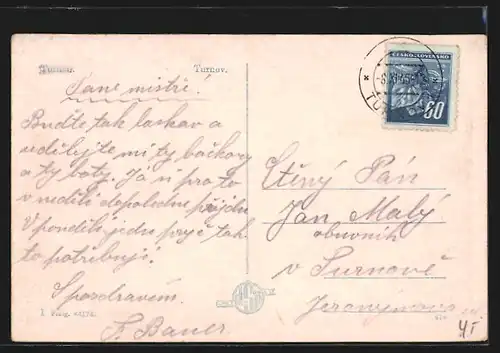 Turnov. Turnov.
Pane mistře!
Buďte tak laskav a
udělejte mi ty bačkory
a ty boty. Já si pro to
v neděli dopoledne přijdu
V pondělí jedu pryč tak
to potřebuji.
S pozdravem.
F. Bauer
ČESKOSLOVENSKO
60
Ctěný Pán
Jan Malý
obuvník
v Turnově
Jeronýmova